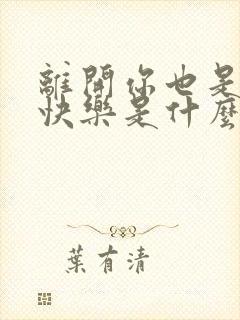 離開你也是
快樂是什麼
葉有清